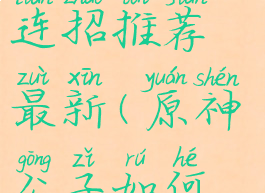 连招推荐
zuì xīn yuán shén
最新(原神
gōng zǐ rú hé
公子如何